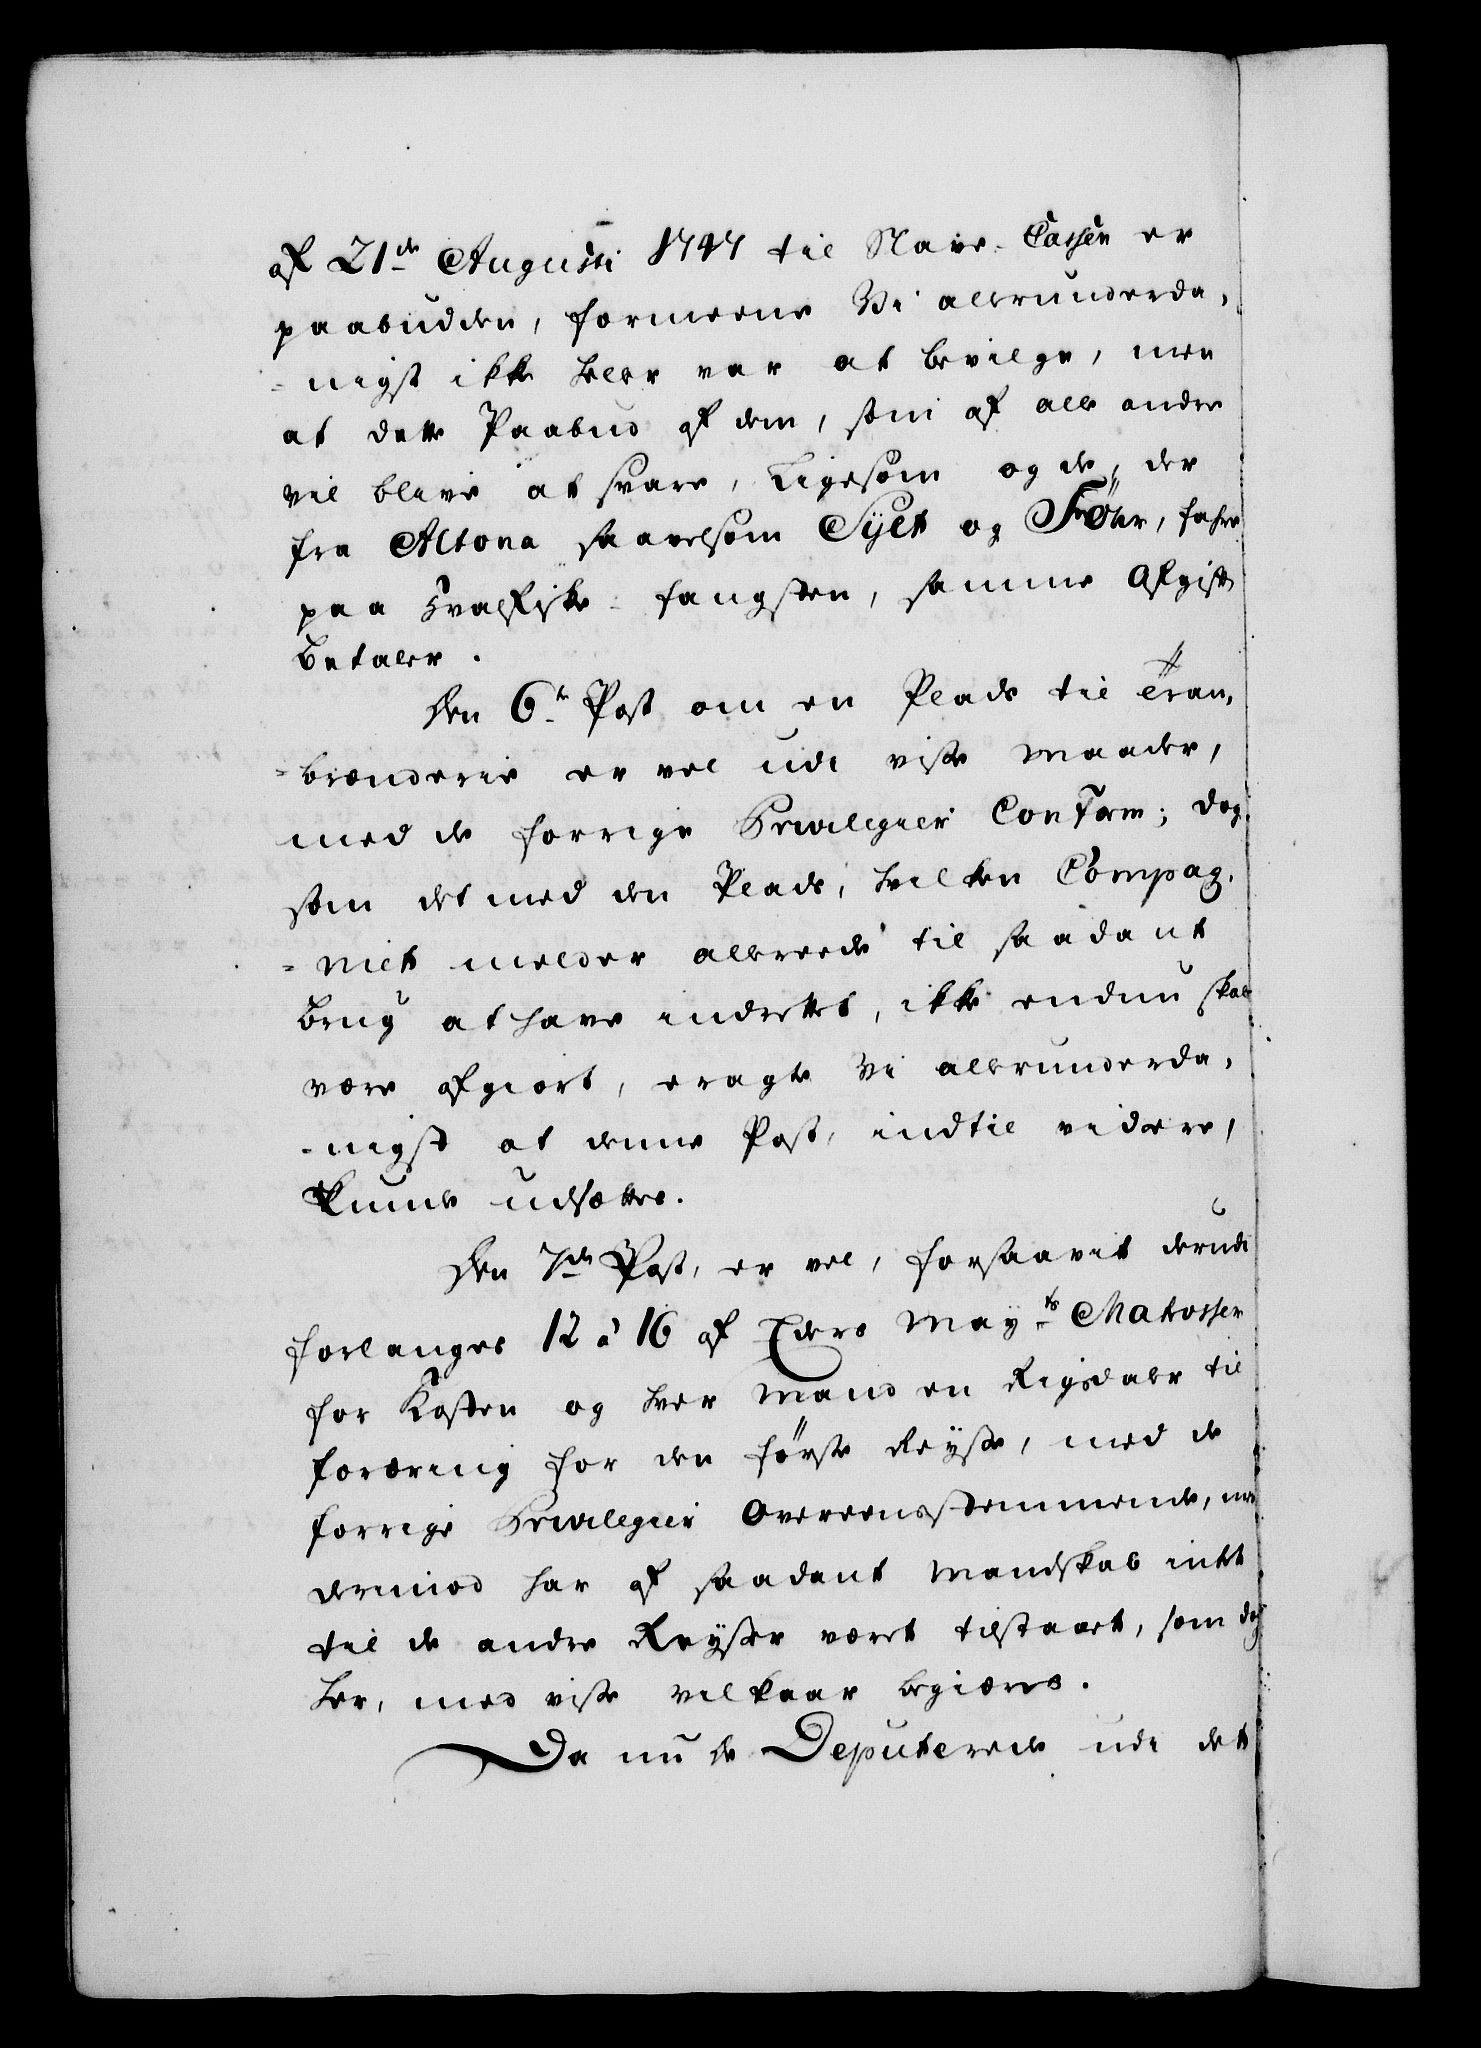 af 21de Augusti 1747 til Slave-Cassen er
paabudden, formeene Vi allerunderda,
-nigst ikke heller var at bevilge, men
at dette Paabud af dem, som af alle andre
vil blive at svare, Ligesom og de, der
fra Altona saavelsom Sÿlt og Föhr, fahre
paa Hvalfiske-fangsten, samme Afgift
betaler.
Den 6te Post om en Plads til Tran,
-brænderie er vel udi visse Maader,
med de forrige Privilegier Conform; dog
som det med den Plads, hvilken Compag,
-niet melder allereede til saadant
brug at have indrettet, ikke endnu skal
være afgiort, eragte Vi allerunderda,
-nigst at denne Post, indtil videre,
kunde udsættes.
Den 7de Post, er vel, forsaavit derudi
forlanges 12 à 16 af Eders Mayts Matrosser
for Kosten og hver Mand en Rigsdaler til
foræring for den første Reyse, med de
forrige Privilegier Overeensstemmende, men
derimod har af saadant Mandskab intet
til de andre Reyser været tilstaaet, som dog
her, med visse Vilkaar begiæres.
Da nu de Deputerede udi det